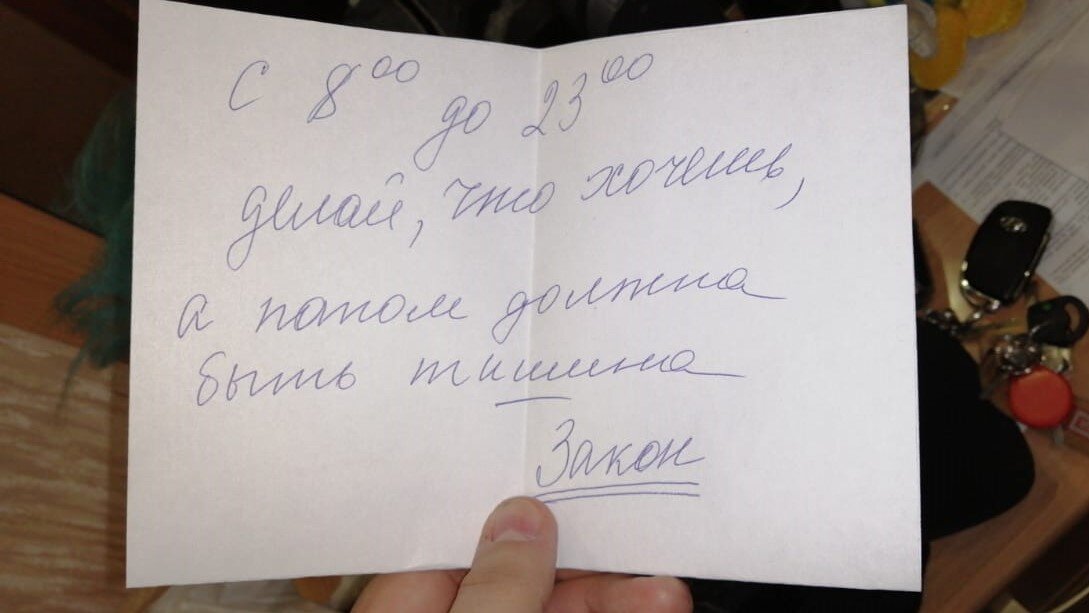 С 8⁰⁰ до 23⁰⁰
делай, что хочешь,
а потом должна
быть тишина
Закон